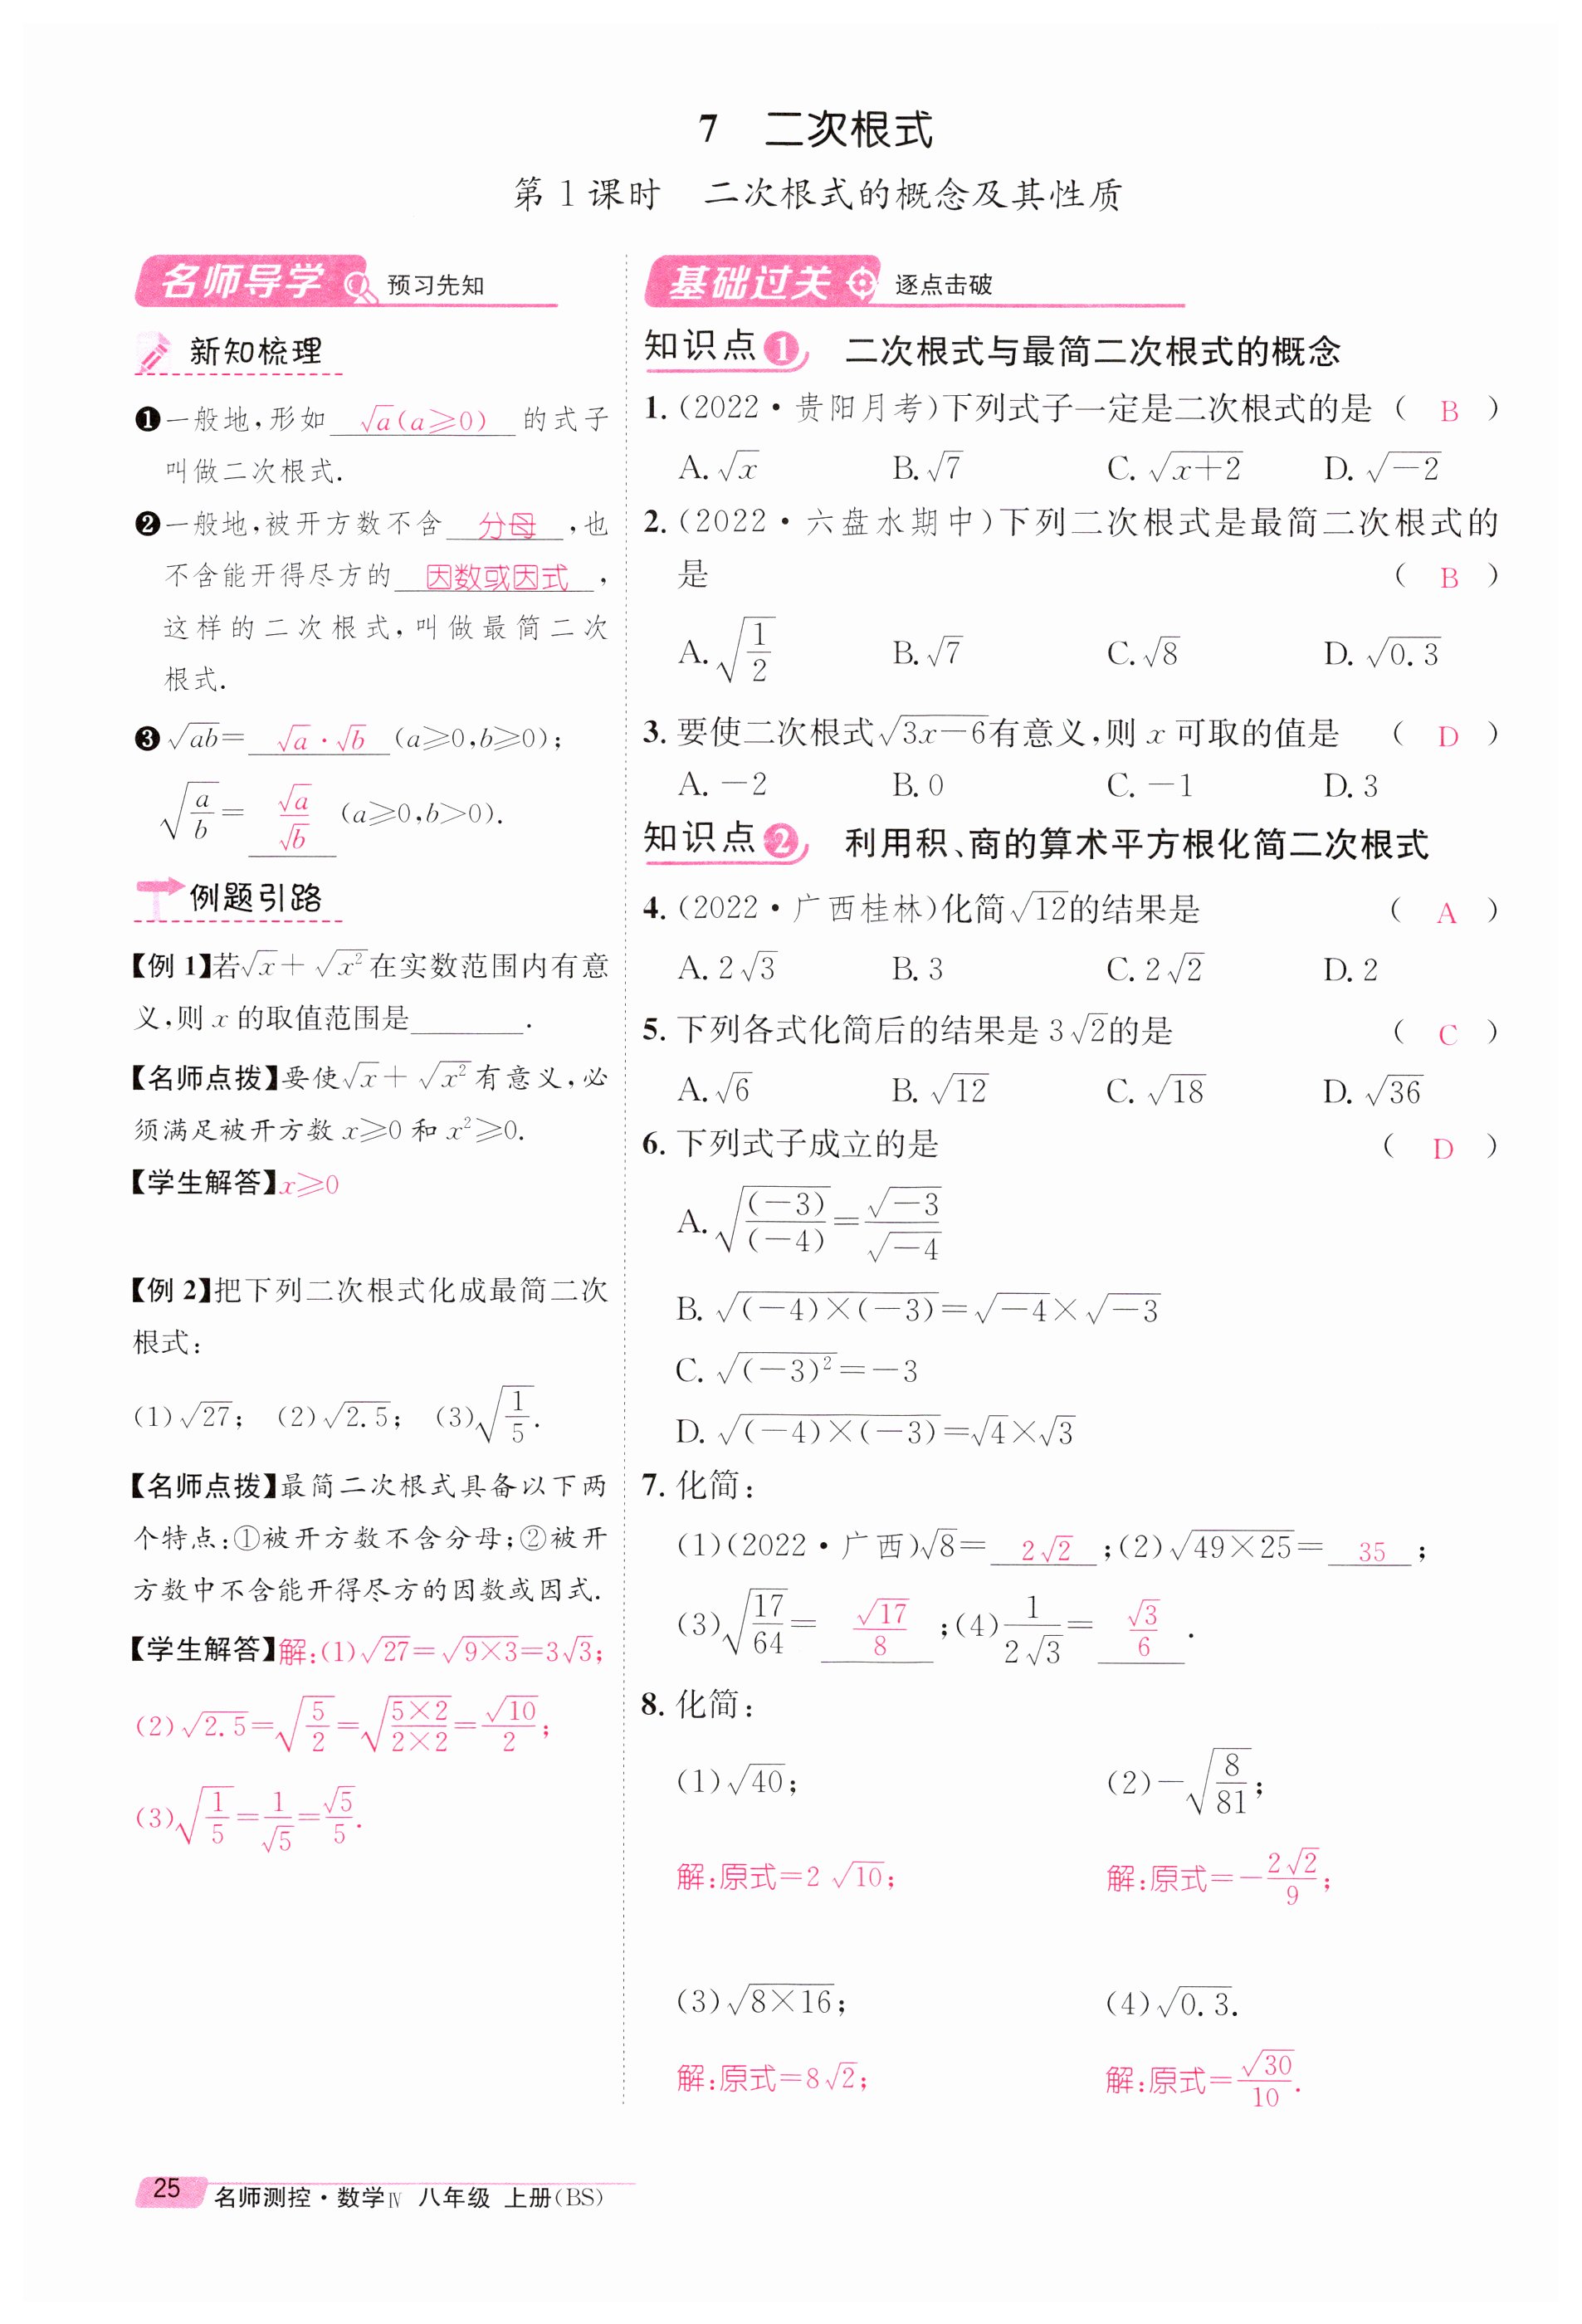 7 二次根式
第 1 课时 二次根式的概念及其性质
名师导学 预习先知
新知梳理
❶一般地,形如 √a(a≥0) 的式子
叫做二次根式.
❷一般地,被开方数不含 分母 ,也
不含能开得尽方的 因数或因式 ,
这样的二次根式,叫做最简二次
根式.
❸√(ab)= √a·√b (a≥0,b≥0);
√(a/b)= √a/√b (a≥0,b>0).
例题引路
【例 1】若√x+√(x²)在实数范围内有意
义,则 x 的取值范围是________.
【名师点拨】要使√x+√(x²)有意义,必
须满足被开方数 x≥0 和 x²≥0.
【学生解答】x≥0
【例 2】把下列二次根式化成最简二次
根式:
(1)√27; (2)√2.5; (3)√(1/5).
【名师点拨】最简二次根式具备以下两
个特点:①被开方数不含分母;②被开
方数中不含能开得尽方的因数或因式.
【学生解答】解:(1)√27=√(9×3)=3√3;
(2)√2.5=√(5/2)=√((5×2)/(2×2))=√10/2;
(3)√(1/5)=1/√5=√5/5.
基础过关 逐点击破
知识点1 二次根式与最简二次根式的概念
1.(2022·贵阳月考)下列式子一定是二次根式的是 ( B )
A.√x B.√7 C.√(x+2) D.√(-2)
2.(2022·六盘水期中)下列二次根式是最简二次根式的
是 ( B )
A.√(1/2) B.√7 C.√8 D.√0.3
3.要使二次根式√(3x-6)有意义,则 x 可取的值是 ( D )
A.-2 B.0 C.-1 D.3
知识点2 利用积、商的算术平方根化简二次根式
4.(2022·广西桂林)化简√12的结果是 ( A )
A.2√3 B.3 C.2√2 D.2
5.下列各式化简后的结果是 3√2的是 ( C )
A.√6 B.√12 C.√18 D.√36
6.下列式子成立的是 ( D )
A.√((-3)/(-4))=√(-3)/√(-4)
B.√((-4)×(-3))=√(-4)×√(-3)
C.√((-3)²)=-3
D.√((-4)×(-3))=√4×√3
7.化简:
(1)(2022·广西)√8= 2√2 ;(2)√(49×25)= 35 ;
(3)√(17/64)= √17/8 ;(4)1/(2√3)= √3/6 .
8.化简:
(1)√40; (2)-√(8/81);
解:原式=2√10; 解:原式=-2√2/9;
(3)√(8×16); (4)√0.3.
解:原式=8√2; 解:原式=√30/10.
25 名师测控·数学Ⅳ 八年级 上册(BS)